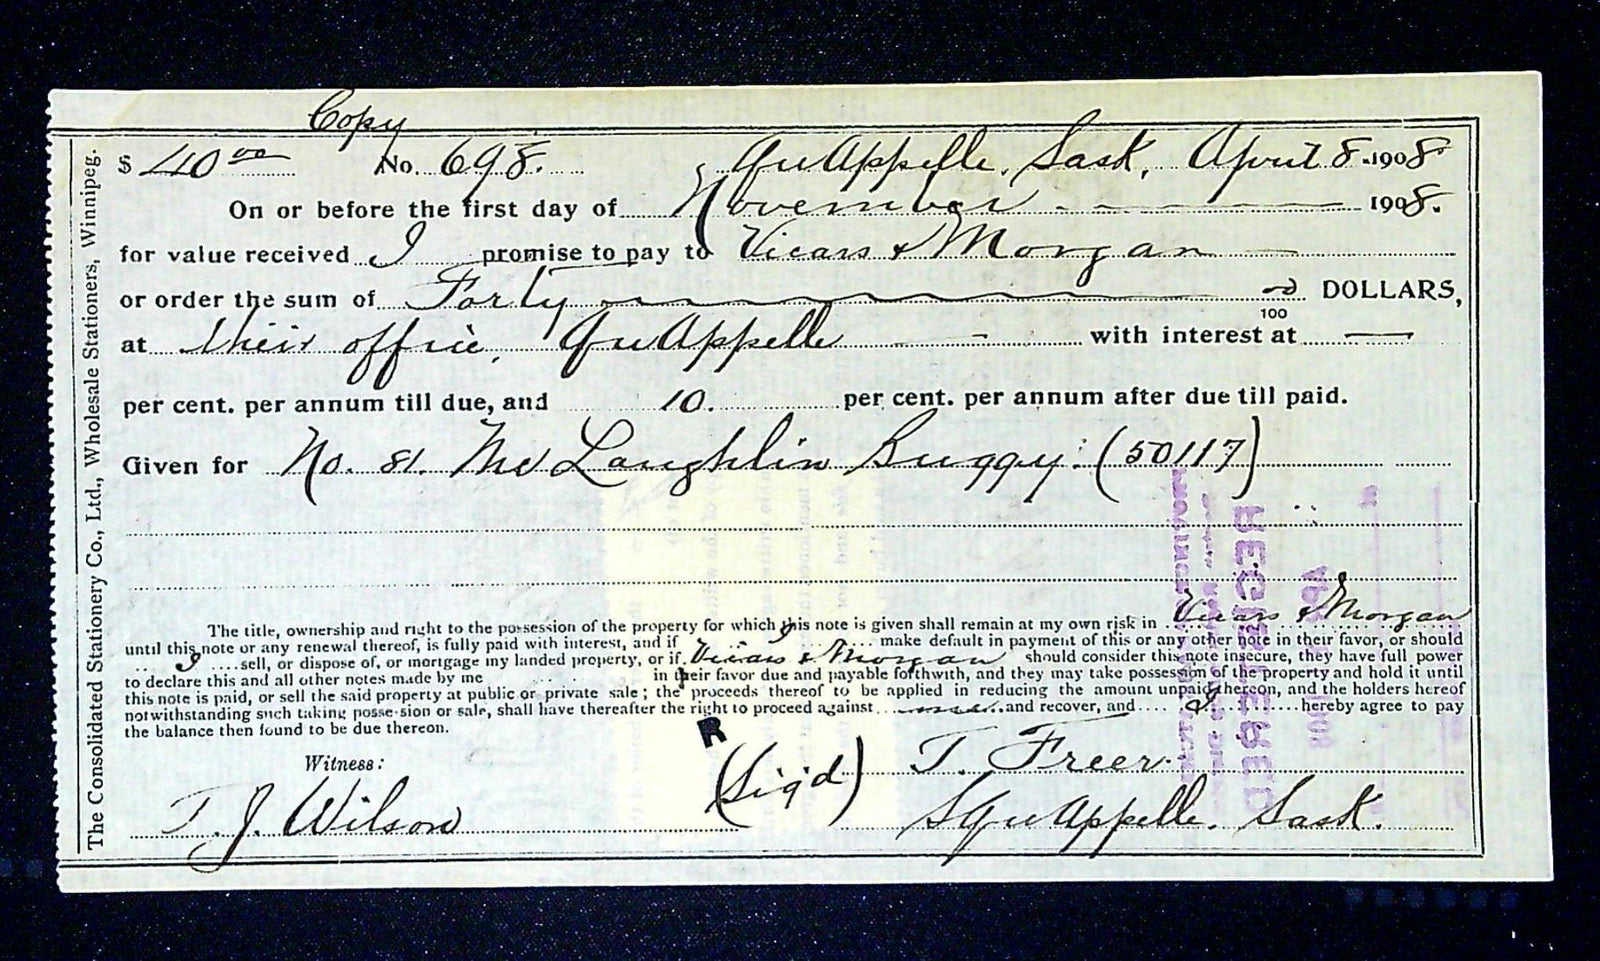 Copy
$ 40 00 No. 698. Qu'Appelle, Sask, April 8. 1908
On or before the first day of November 1908.
for value received I promise to pay to Vicars & Morgan
or order the sum of Forty no/100 DOLLARS,
at their office, Qu'Appelle with interest at —
per cent. per annum till due, and 10. per cent. per annum after due till paid.
Given for No. 81. McLaughlin Buggy. (50117)
The title, ownership and right to the possession of the property for which this note is given shall remain at my own risk in Vicars & Morgan
until this note or any renewal thereof, is fully paid with interest, and if I make default in payment of this or any other note in their favor, or should
I sell, or dispose of, or mortgage my landed property, or if Vicars & Morgan should consider this note insecure, they have full power
to declare this and all other notes made by me in their favor due and payable forthwith, and they may take possession of the property and hold it until
this note is paid, or sell the said property at public or private sale; the proceeds thereof to be applied in reducing the amount unpaid thereon, and the holders hereof
notwithstanding such taking possession or sale, shall have thereafter the right to proceed against me and recover, and I hereby agree to pay
the balance then found to be due thereon.
R
Witness: (Sig'd) T. Freer.
T. J. Wilson SQu'Appelle, Sask.
The Consolidated Stationery Co., Ltd., Wholesale Stationers, Winnipeg.
RECEIVED